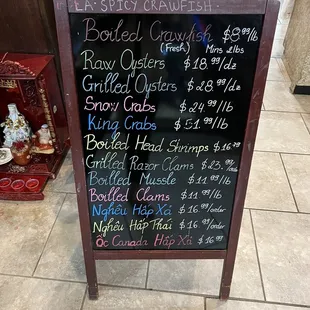 LA·SPICY CRAWFISH
Boiled Crawfish $8.99/lb
(Fresh) Mins 2lbs
Raw Oysters $18.99/dz
Grilled Oysters $28.99/dz
Snow Crabs $24.99/lb
King Crabs $51.99/lb
Boiled Head Shrimps $16.79
Grilled Razor Clams $23.99
Boilled Mussle $11.99/lb
Boilled Clams $11.99/lb
Nghêu Hấp Xả $16.99/order
Nghêu Hấp Thái $16.99/order
Ốc Canada Hấp Xả $16.99